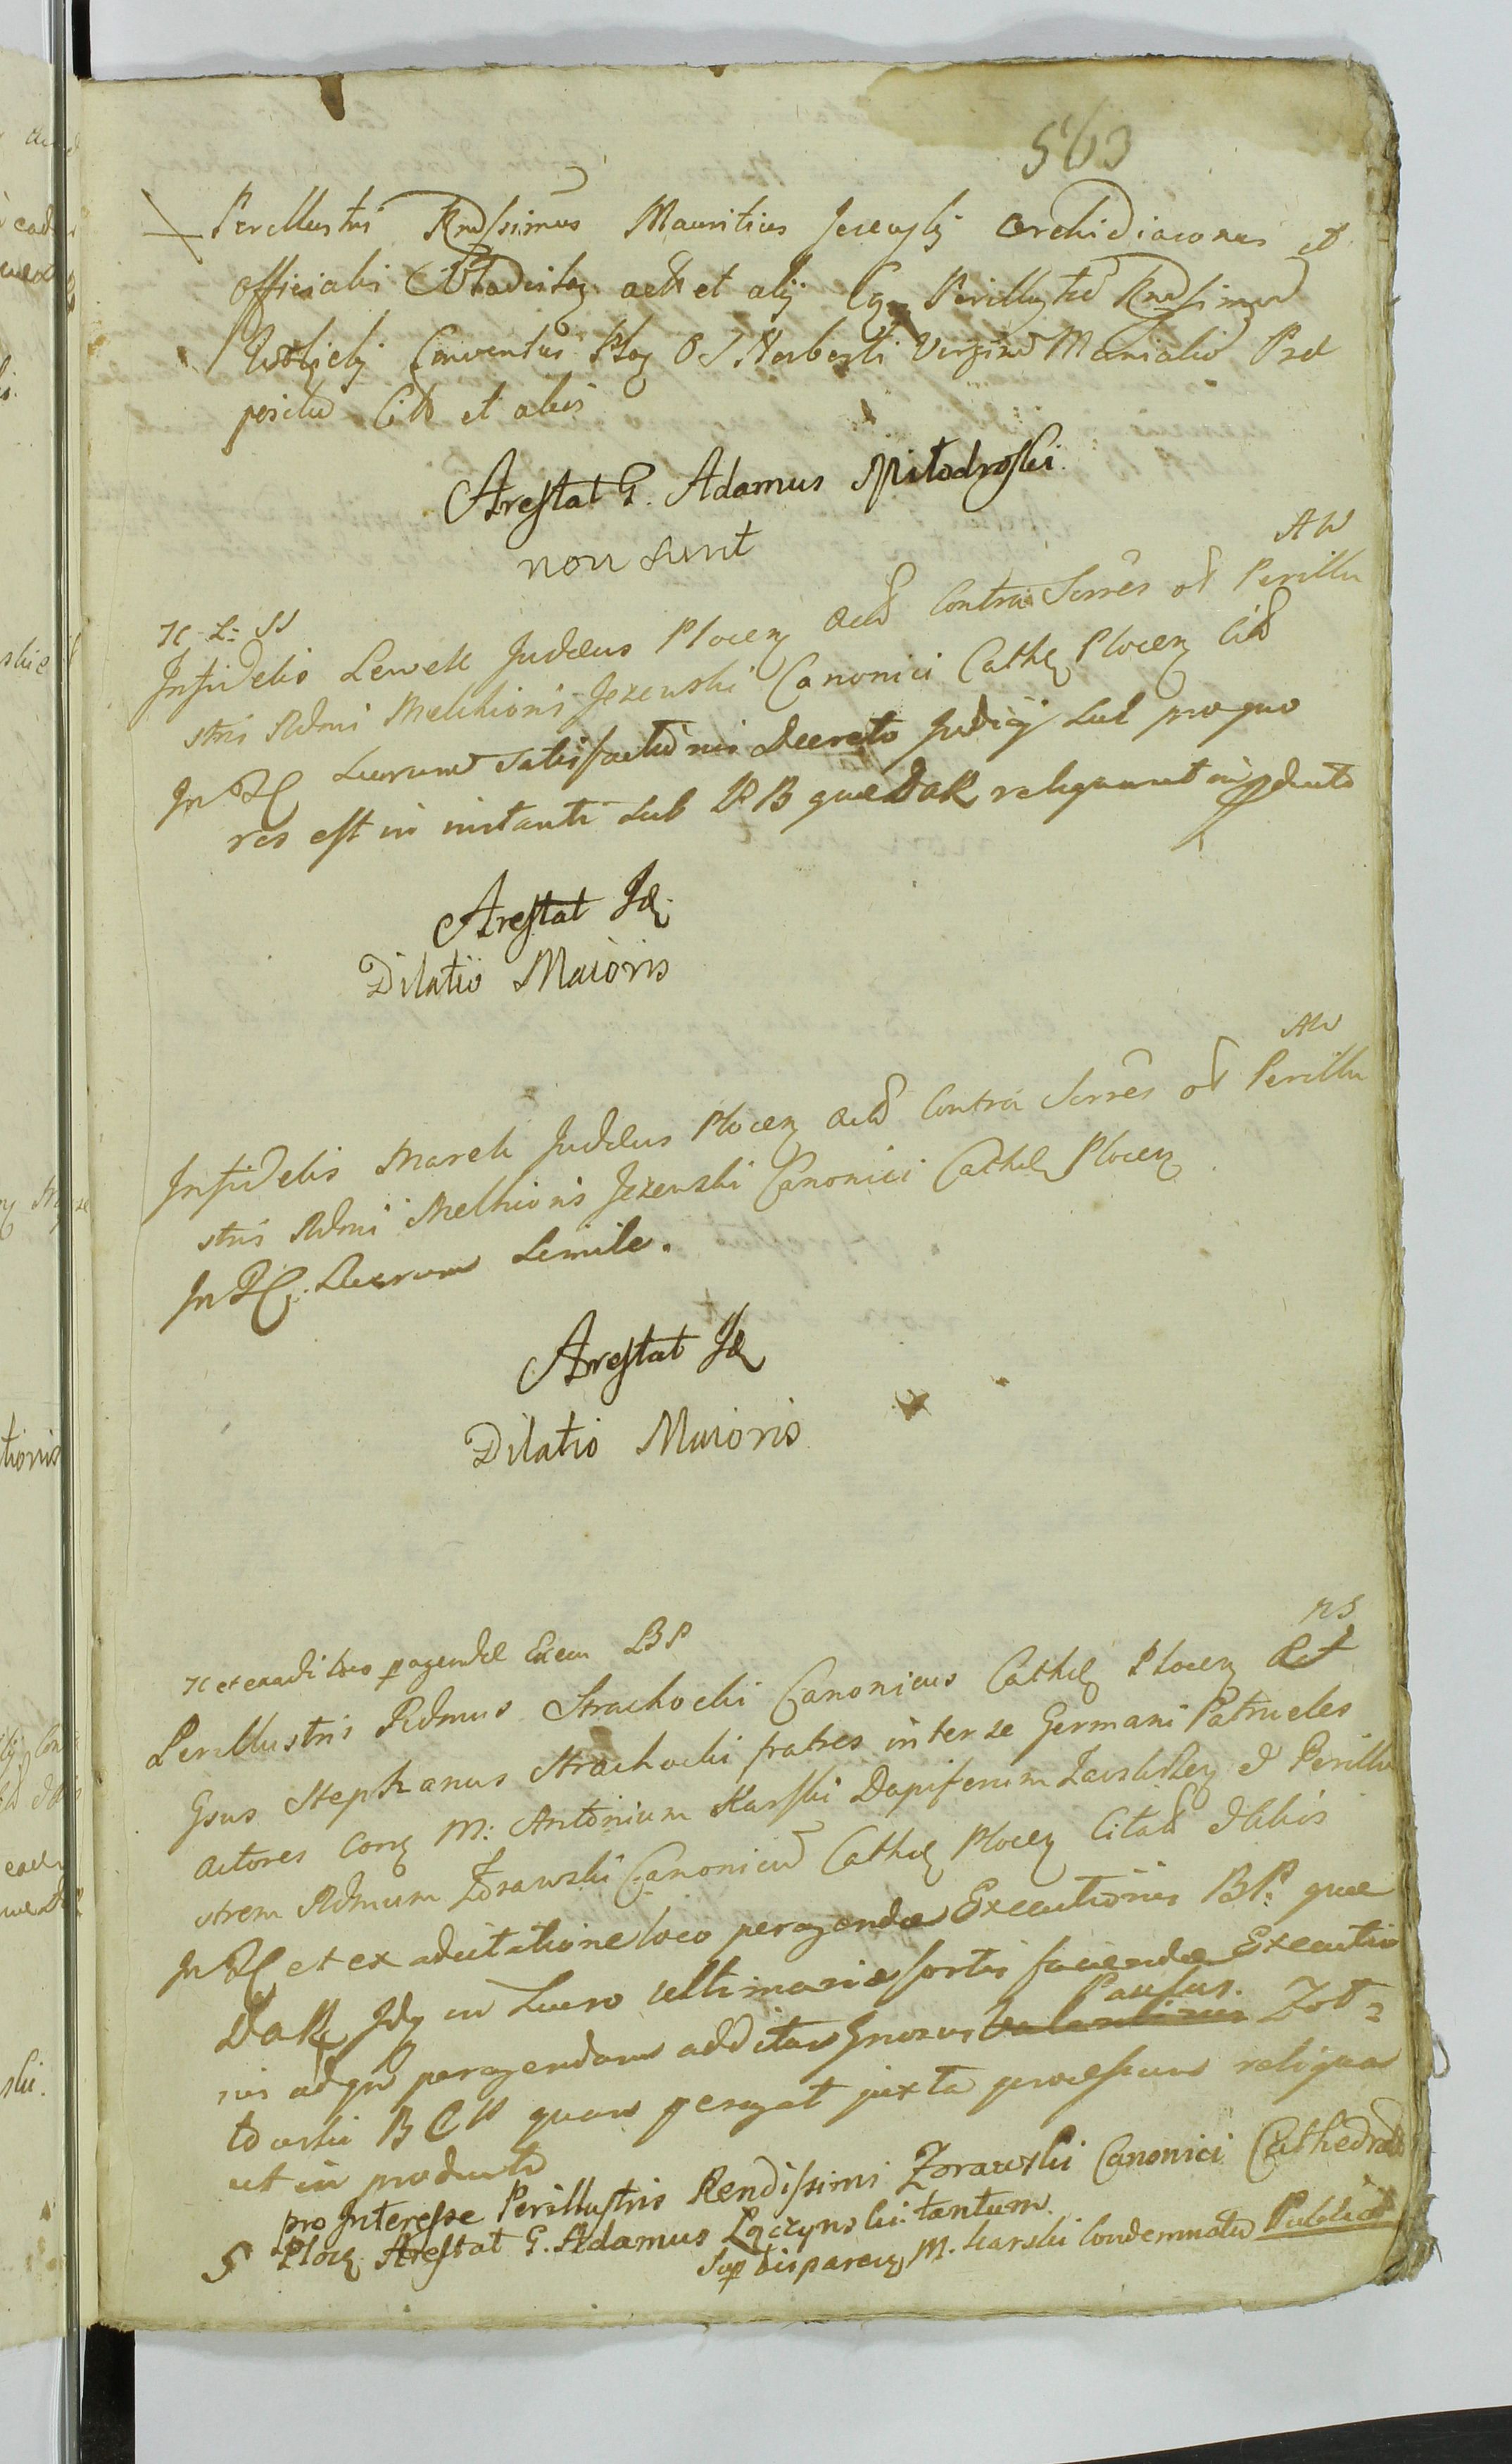 563
Perillustris Rndssimus Mauritius Jezewskj Archidiaconus et
Officialis Vladislaẓ act et alij Cẓ Perillustrẽ Rndssimum
Conventus Ploẓ O S Norberti Virginũ Monialiũ Præ
positũ Citt et aliis
Arestat G. Adamus Miłodroski
non sunt
AW
H L: SS
Infidelis Lewek Judæus Plocenẓ act Contra Sũrres ol Perillu
stris Rdmi Melchioris Jezewski Canonici Cathẓ Plocenẓ Citt
In H Lucrum Satisfactionis Decreto Judicij sub pro quo
res est in instanti sub PB quæ DaR reliquant in pducto
Arestat Id.
Dilatio Maioris
AW
Infidelis Marek Judæus Plocenẓ act Contra Sũrres ol Perillu
stris Rdmi Melhioris Jezewski Canonici Cathẓ Plocenẓ
In H. Lucrum Simile.
Arestat Id
Dilatio Maioris
ns
H et ex adi loco pagendæ Execu BP
Perillustris Rdmus Strachocki Canonicus Cathẓ Plocenẓ et
Gsus Stephanus Strachocki fratres inter se Germani Patrueles
actores Conẓ M: Antonium Karski Dapiferum Zawskrẓ et Perillu
strem Rdmum Zorawski Canonicũ Cathẓ Plocenẓ Citatt et aliis
In H et ex adcitatione loco peragendæ Executionis BP: quæ
DaR Idẓ in Lucro ultimariæ sortis faciendæ Executio
Paulus.
nis ad qm peragendam additur Gnosus Valentinus Zot=
towski BCP quam peragat juxta processum reliqua
ut in producto
pro Interesse Perillustris Rendissimi Zorawski Canonici Cathedral
5 Plocẓ Arestat G. Adamus Łączynski tantum.
Sup disparenẓ M. Karski Condemnatũ Publicat